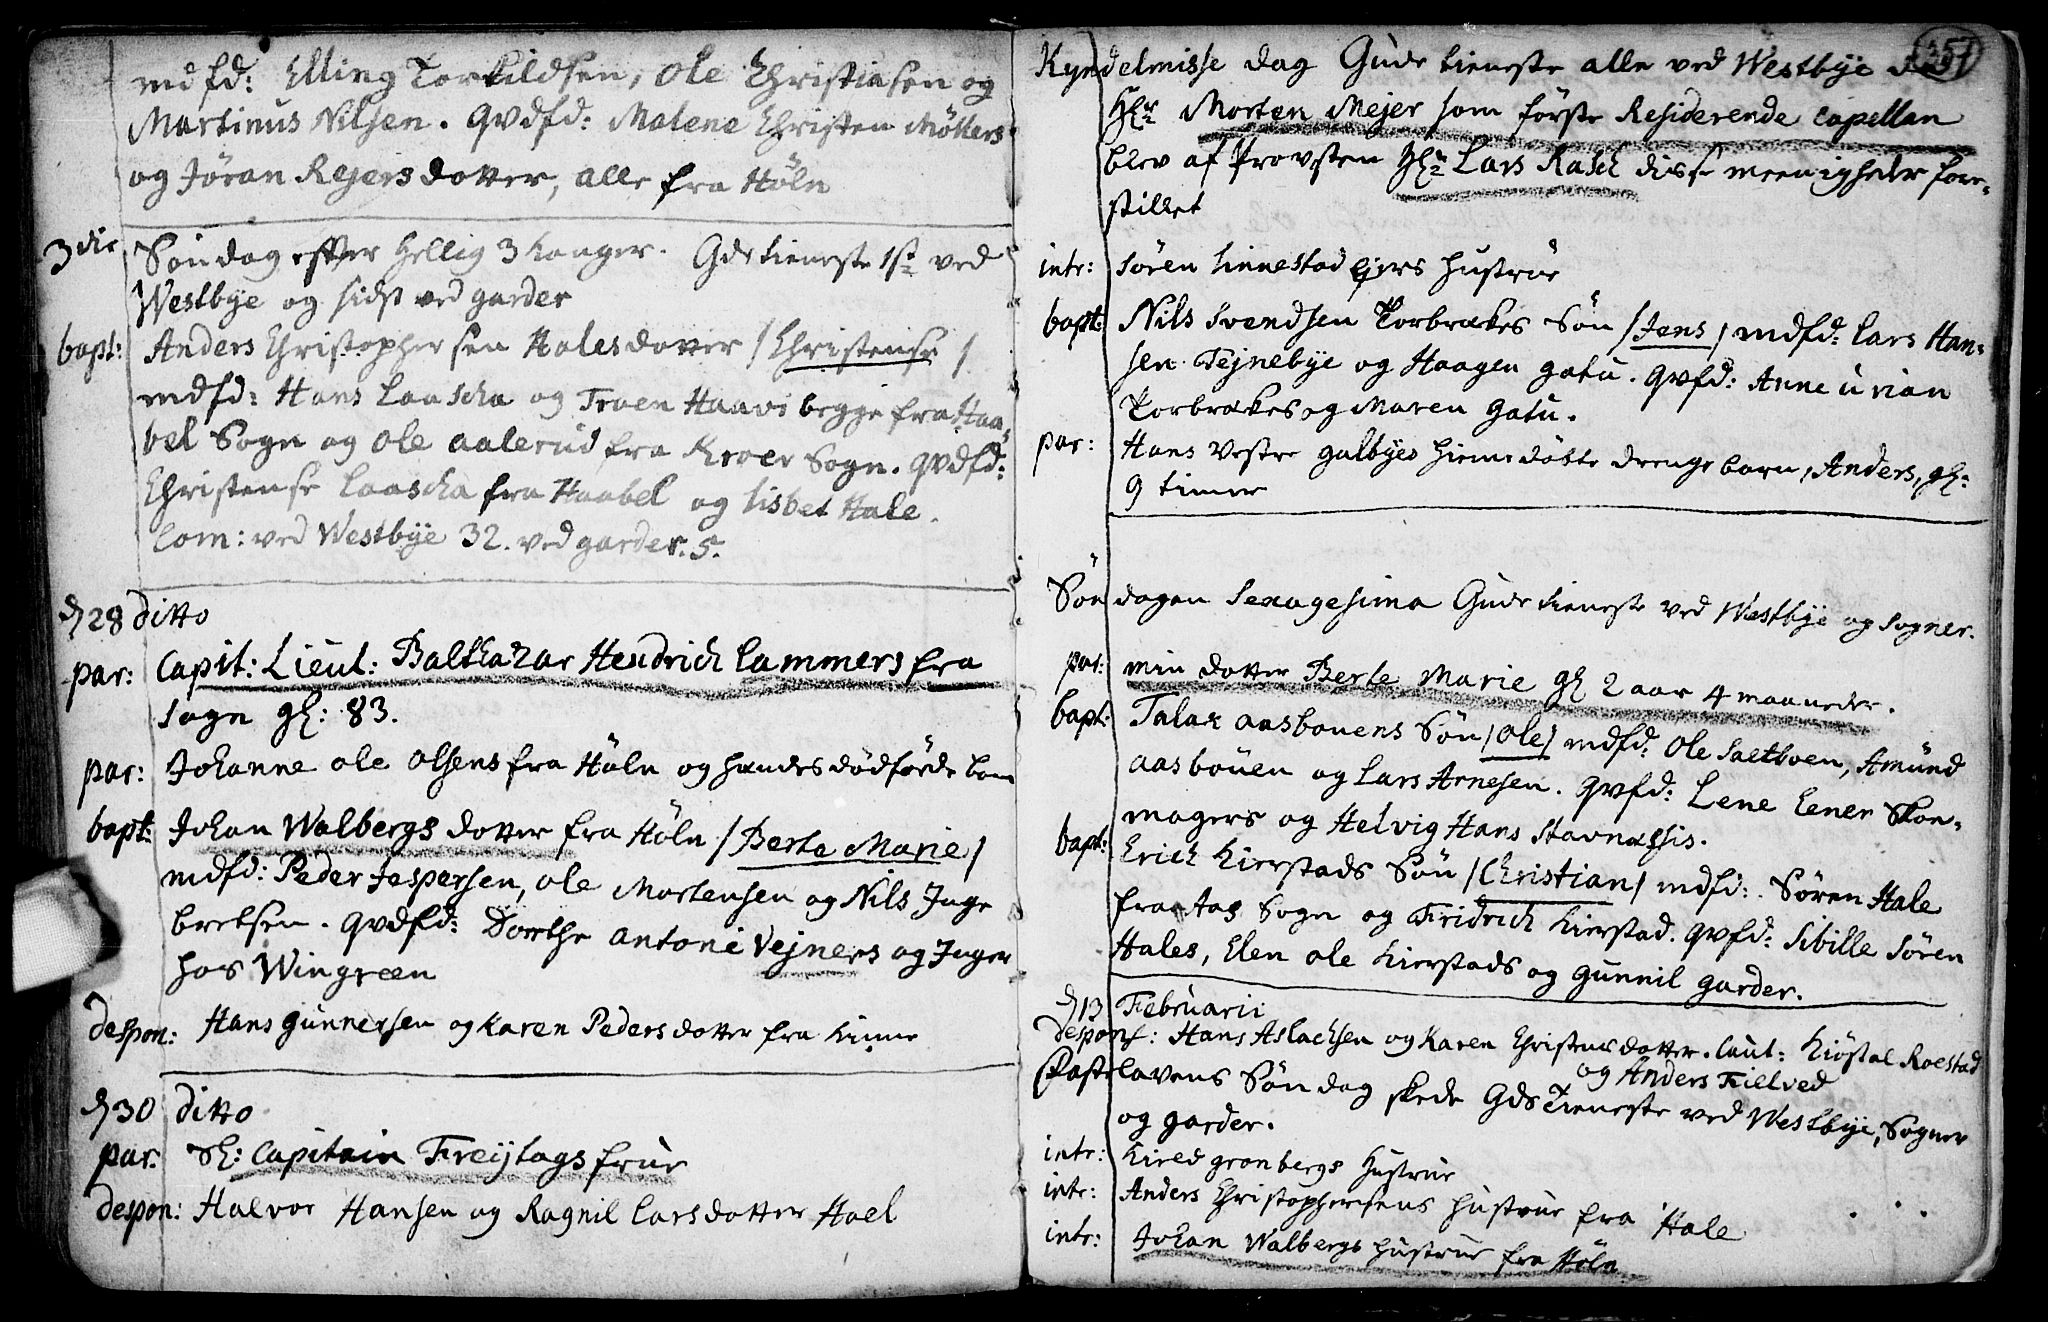 mdfd: Elling Torkildsen, Ole Christiensen og
Martinus Nilsen. Qvdfd: Malene Christen Møllers
og Jøran Rejersdotter, alle fra Høln
3die Søndag efter Hellig 3 Konger. Gds tieneste 1st ved
Westbye og sidst ved garder
bapt: Anders Christophersen Holes dotter / Christense /
mdfd: Hans Laascha og Troen Haavi begge fra Haa,
bel Sogn og Ole aalerud fra Kroer Sogn. Qvdfd:
Christense Laascha fra Haabel og Lisbet Hale.
Com: ved Westbye 32. ved garder. 5.
d 28 ditto
par: Capit: Lieut: Balthazar Hendrich Lammers fra
Sogn gl: 83.
par: Johanne Ole Olsens fra Høln og hendes dødfødde barn
bapt: Johan Walbergs dotter fra Høln / Berte Marie /
mdfd: Peder Jespersen, Ole Mortensen og Nils Inge
bretsen. Qvdfd: Dorthe Antoni Vejners og Inger
hos Wingreen
despon: Hans Gunnersen og Karen Pedersdotter fra Kinne
d 30 ditto
par. Sl: Capitain Freijtags frue
despon: Halvor Hansen og Ragnil Larsdotter Hoel
357
Kyndelmisse dag Guds tieneste alle ved Westbye da
Hr Morten Mejer som første Residerende Capellan
blev af Provsten Hr Lars Rasch disse meenigheder fore,
stillet
intr: Søren Linnestad Ejers Hustrue
bapt: Nils Svendsen Torbrækes Søn / Jens / mdfd: Lars Han,
sen Tejnebye og Haagen gatu. qvfd: Anne
Torbrækes og Maren Gatu.
par: Hans Vestre galbyes hiemedøbte drengebarn, Anders, gl:
9 timer
Søndagen Sexagesima Guds tieneste ved Westbye og Sogner.
par: min dotter Berte Marie gl 2 aar 4 maaneder.
bapt: Talax aasbouens Søn / Ole / mdfd: Ole Saltboen, Amund
aasbouen og Lars Arnesen. qvfd: Lene Eener Skom,
magers og Helvig Hans Stavnæssis.
bapt: Erich Kierstads Søn / Christian / mdfd: Søren Hale
fra Aas Sogn og Fridrich Kierstad. qvfd: Sibille Søren
Hales, Elen Ole Kierstads og Gunnil Garder.
d 13 Februarii
desponf: Hans Aslachsen og Karen Christensdotter. Caut: Kiøstal Roestad
og Anders Fielved
Fastelavens Søndag skede Gds Tieneste ved Westbye, Sogner
og garder.
intr: Kired gronbergs Hustrue
intr: Anders Christophersens Hustrue fra Hale
intr: Johan Walbergs hustrue fra Høln